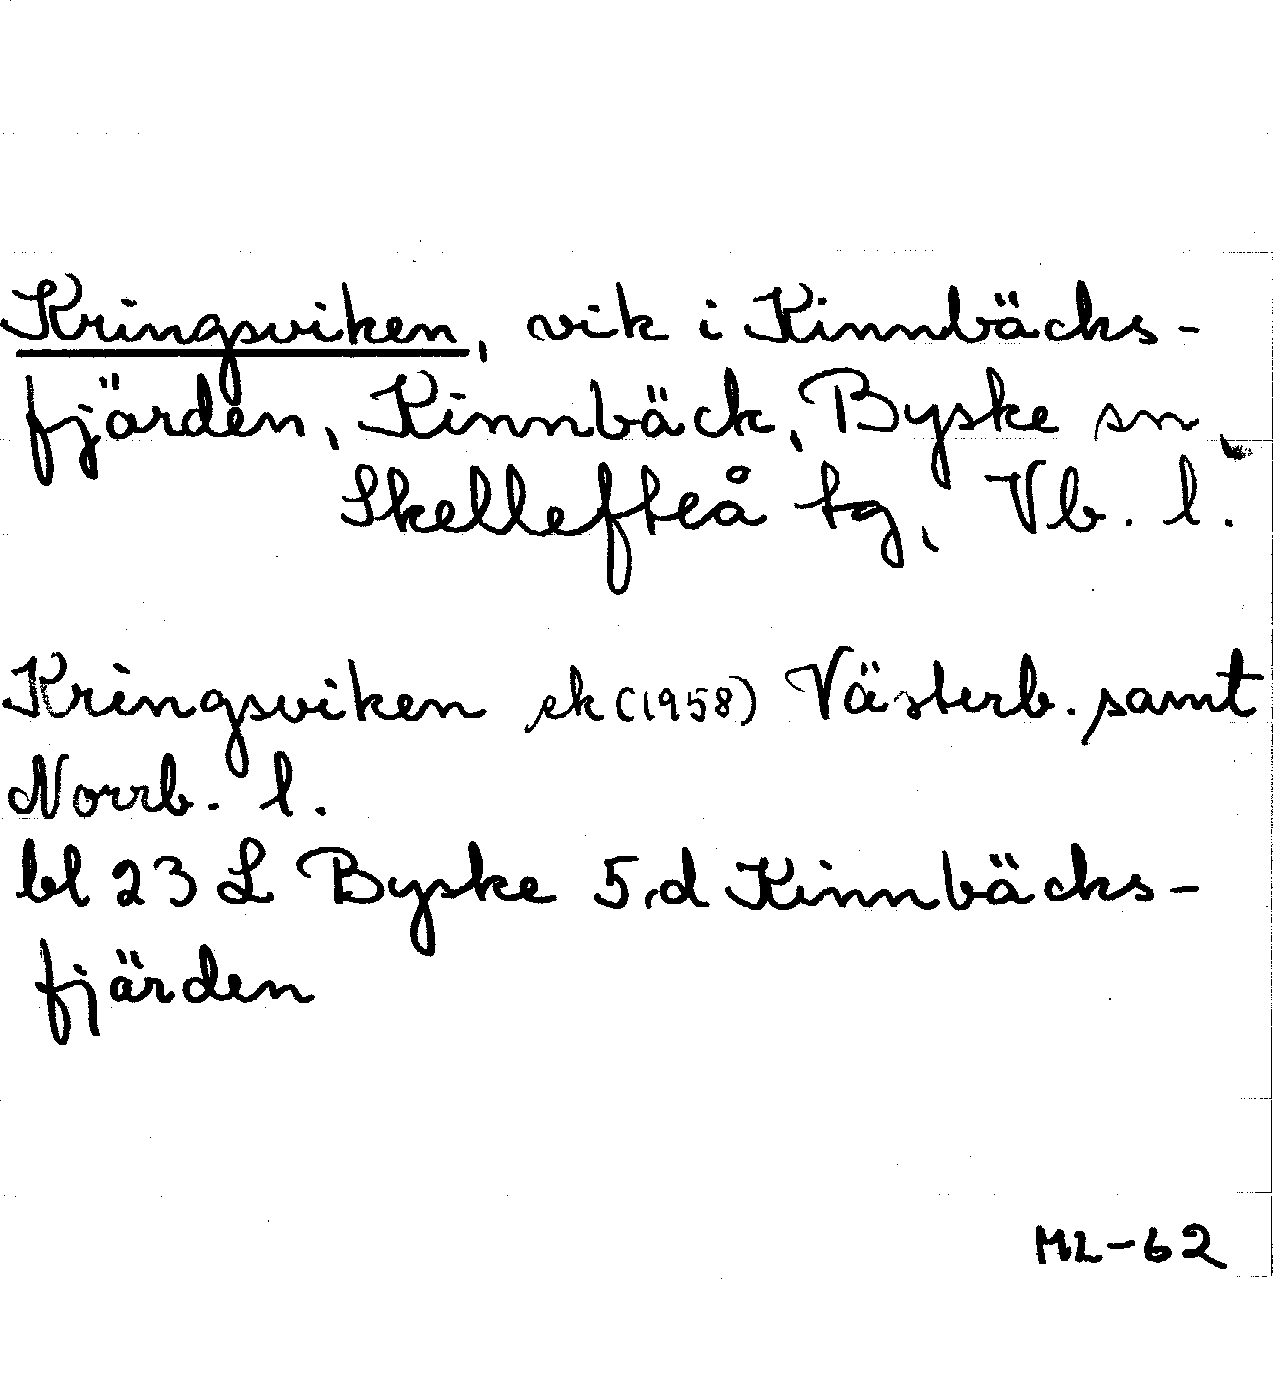 Kringsviken, vik i Kinnbäcks-
fjärden, Kinnbäck, Byske sn,
Skellefteå tg, Vb. l.
Kringsviken ek (1958) Västerb. samt
Norrb. l.
bl 23 L Byske 5,d Kinnbäcks-
fjärden
ML-62